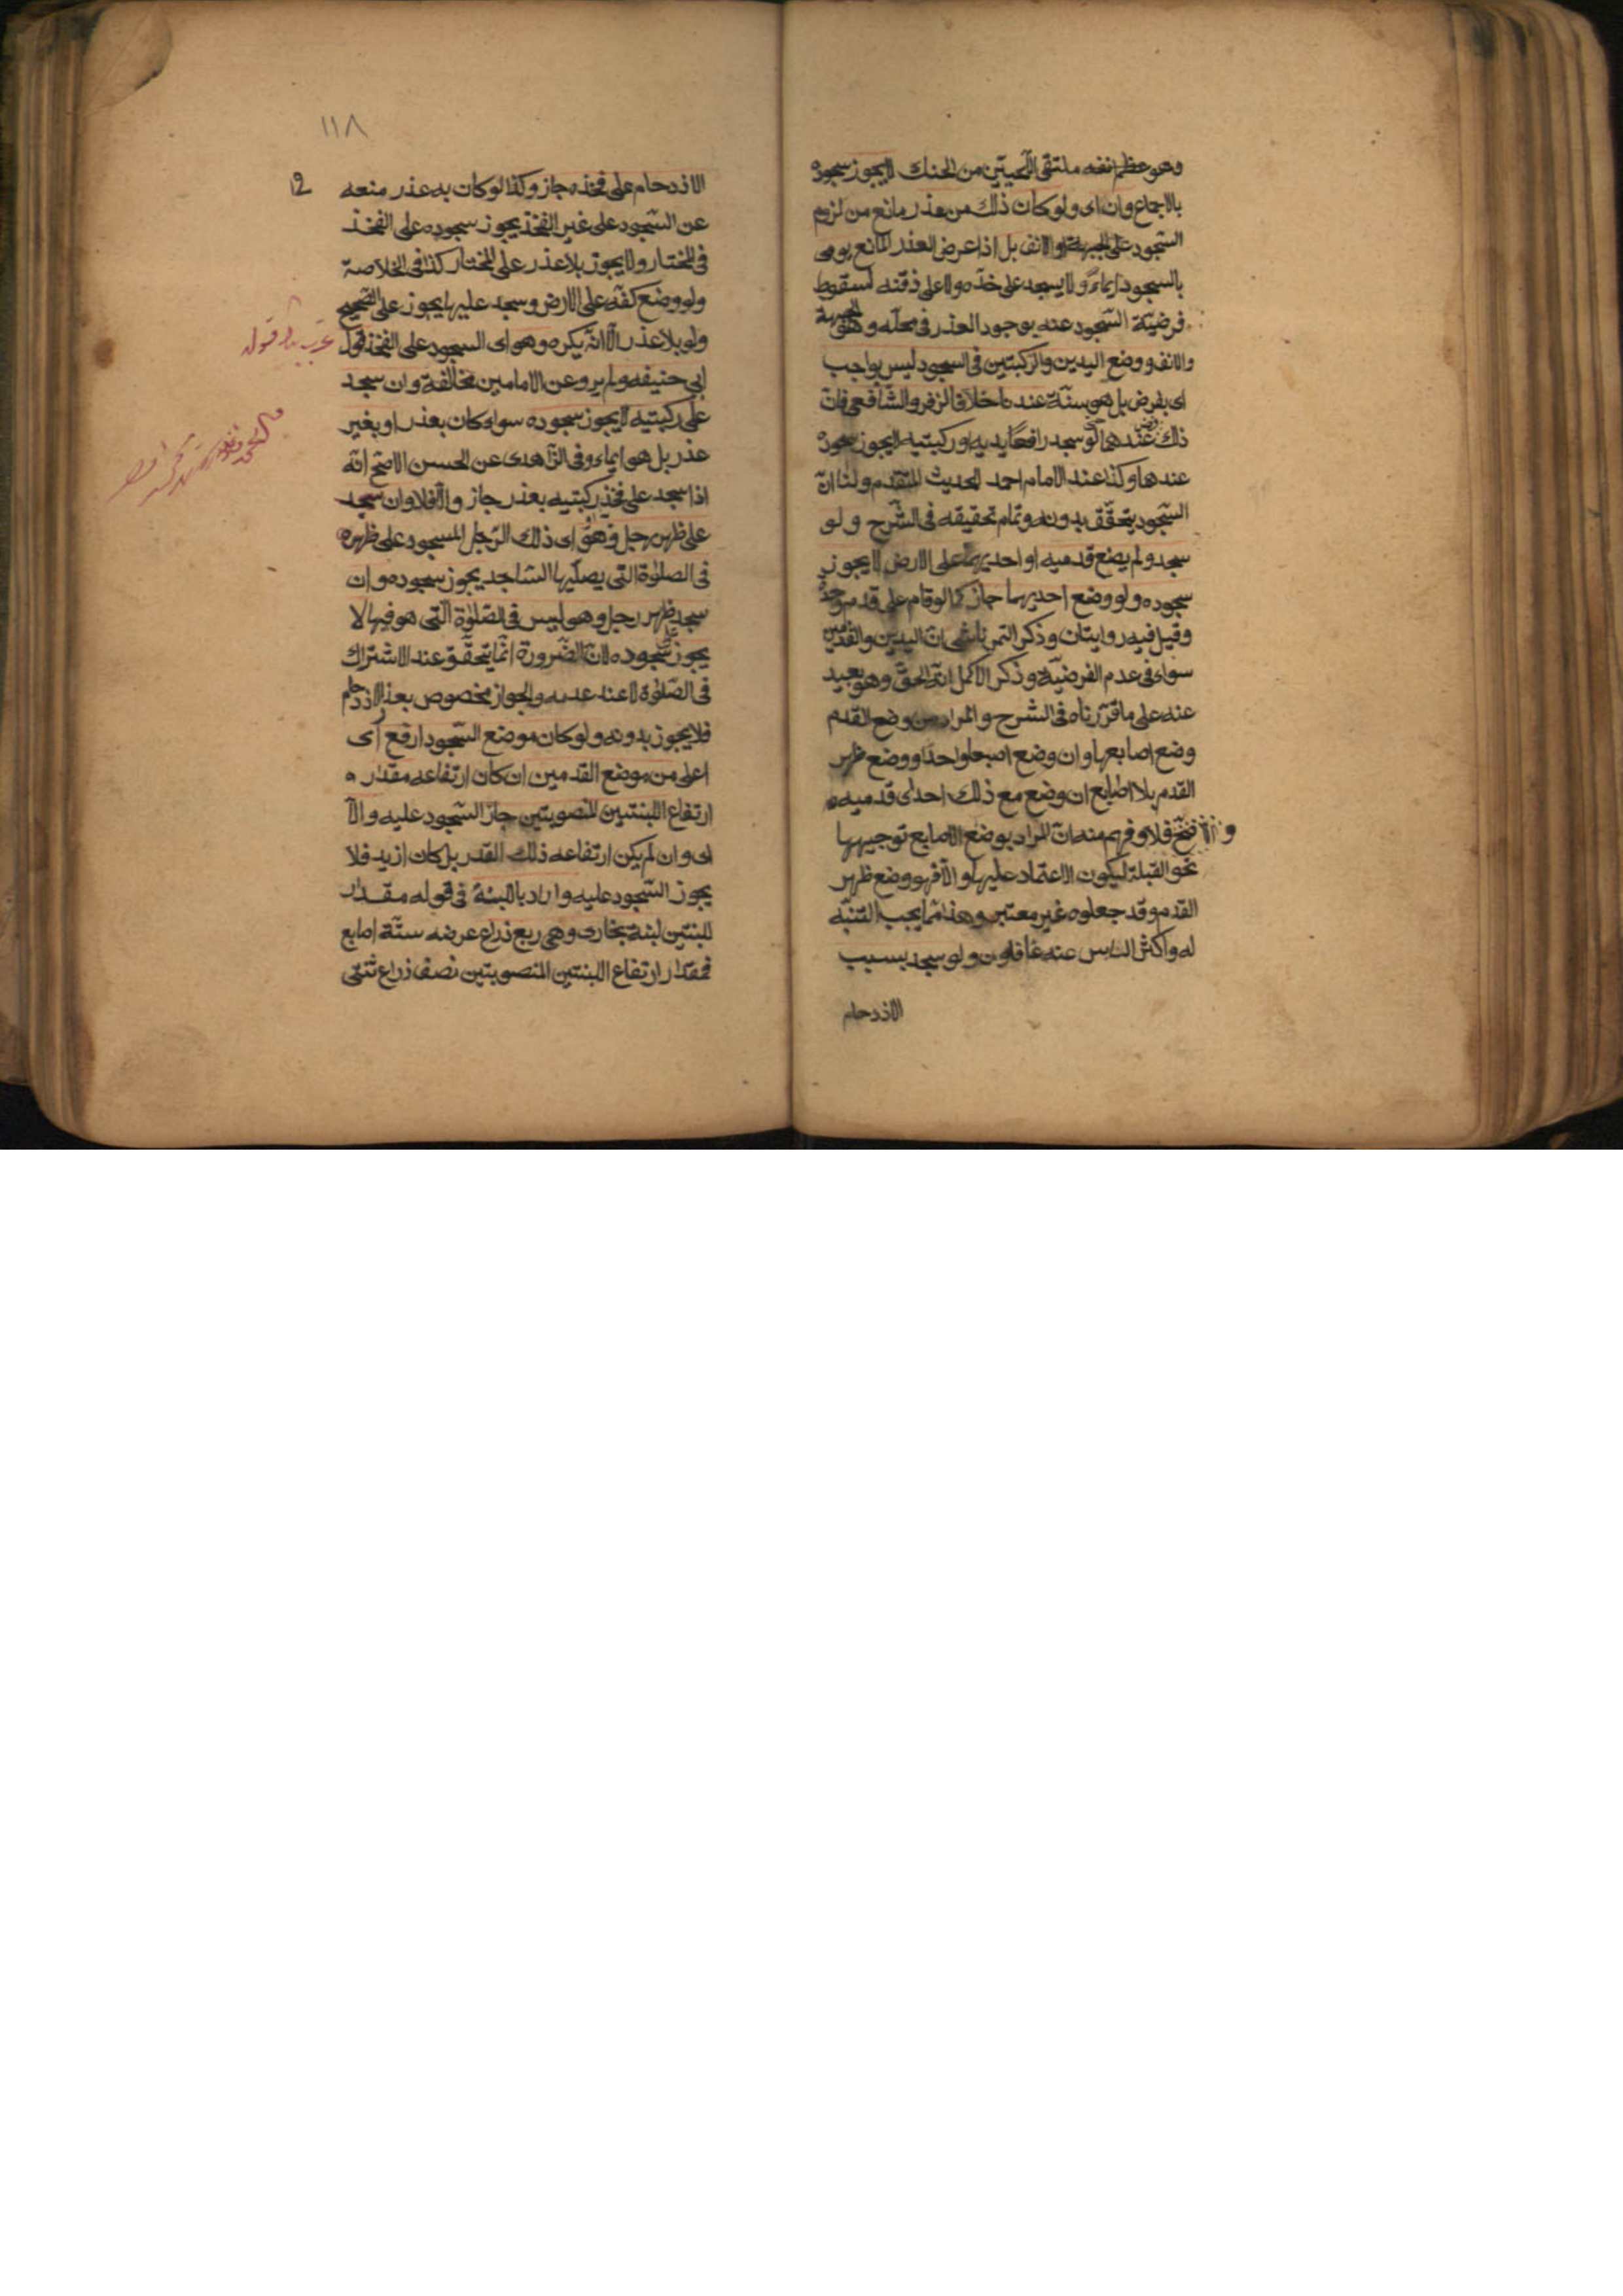 وهو عظم نفه ملتقى اللّحيتين من الحنك لا يجوز سجوده
بالاجماع وان اى ولو كان ذلك من عذر مانع من لزوم
السّجود على الجبهة او الانف بل اذا عرض العذر المانع يومى
بالسجود ايماءً ولا يسجد على خدّه ولا على ذقنه لسقوط
فرضيّة السّجود عنه بوجود العذر فى محلّه وهو الجبهة
والانف ووضع اليدين والركبتين فى السجود ليس بواجب
اى بفرض بل هو سنّة عندنا خلافا لزفر والشافعى فانّ
ذلك فرض عندهما حتى لو سجد رافعًا يديه او ركبتيه لا يجوز سجوده
عندهما وكذا عند الامام احمد للحديث المتقدم ولنا انّ
السّجود يتحقّق بدونه وتمام تحقيقه فى الشّرح ولو
سجد ولم يضع قدميه او احديهما على الارض لا يجوز
سجوده ولو وضع احديهما جاز كما لو قام على قدم واحدة
وقيل فيه روايتان وذكر التمرتاشى انّ اليدين والقدمين
سواء فى عدم الفرضيّة وذكر الاكمل انّه الحقّ وهو بعيد
عنه على ما قرّرناه فى الشرح والمراد من وضع القدم
وضع اصابعها وان وضع اصبعا واحدًا ووضع ظهر
القدم بلا اصابع ان وضع مع ذلك احدى قدميه
صحّ والّا فلا وفهم منه انّ المراد بوضع الاصابع توجيهها
نحو القبلة ليكون الاعتماد عليها والّا فهو وضع ظهر
القدم وقد جعلوه غير معتبر وهذا ممّا يجب التنبّه
له واكثر الناس عنه غافلون ولو سجد بسبب
الازدحام
١١٨
الازدحام على فخذه جاز وكذا لو كان به عذر منعه
عن السّجود على غير الفخذ يجوز سجوده على الفخذ
فى المختار ولا يجوز بلا عذر على المختار كذا فى الخلاصة
ولو وضع كفّه على الارض وسجد عليها يجوز على الصّحيح
ولو بلا عذر الّا انّه يكره وهو اى السجود على الفخذ قول
ابى حنيفه ولم يرو عن الامامين مخالفة وان سجد
على ركبتيه لا يجوز سجوده سواء كان بعذر او بغير
عذر بل هو ايماء وفى الزّاهدى عن الحسن الاصحّ انّه
اذا سجد على فخذ ركبتيه بعذر جاز والّا فلا وان سجد
على ظهر رجل وهو اى ذلك الرّجل المسجود على ظهره
فى الصلوة التى يصلّيها السّاجد يجوز سجوده وان
سجد على ظهر رجل وهو ليس فى الصّلوة الّتى هو فيها لا
يجوز سجوده لانّ الضّرورة انّما يتحقّق عند الاشتراك
فى الصّلوة لا عند عدمه والجواز مخصوص بعذر الازدحام
فلا يجوز بدونه ولو كان موضع السّجود ارفع اى
اعلى من موضع القدمين ان كان ارتفاعه مقدار
ارتفاع اللبنتين المنصوبتين جاز السّجود عليه والّا
اى وان لم يكن ارتفاعه ذلك القدر بل كان ازيد فلا
يجوز السّجود عليه واراد باللبنة فى قوله مقدار
اللبنتين لبنة بخارى وهى ربع ذراع عرضه ستّة اصابع
فمقدار ارتفاع اللبنتين المنصوبتين نصف ذراع ثنتى